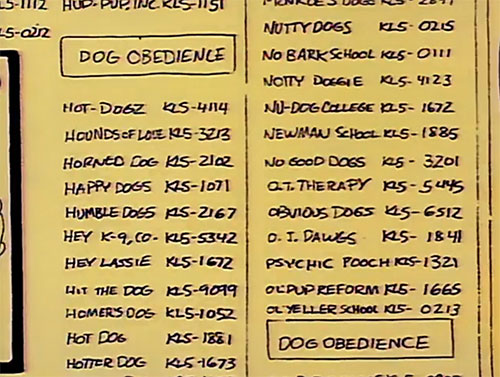 HUD-PUP, INC. KL5-1151
DOG OBEDIENCE
HOT-DOGZ KL5-4114
HOUNDS OF LOVE KL5-3213
HORNED DOG KL5-2102
HAPPY DOGS KL5-1071
HUMBLE DOGS KL5-2167
HEY K-9, CO- KL5-5342
HEY LASSIE KL5-1672
HIT THE DOG KL5-9099
HOMER'S DOG KL5-1052
HOT DOG KL5-1881
HOTTER DOG KL5-1673
NUTTY DOGS KL5-0215
NO BARK SCHOOL KL5-0111
NOTTY DOGGIE KL5-4123
NU-DOG COLLEGE KL5-1672
NEWMAN SCHOOL KL5-1885
NO GOOD DOGS KL5-3201
O.T. THERAPY KL5-5445
OBVIOUS DOGS KL5-6512
O.J. DAWGS KL5-1841
PSYCHIC POOCH KL5-1321
OL'PUP REFORM KL5-1665
OL'YELLER SCHOOL KL5-0213
DOG OBEDIENCE